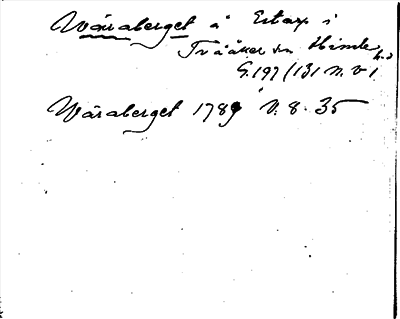 Wäraberget å Estarp i
Tvååker sn Himle hd
G.197 (131 n. v 1
Wäraberget 1789 V. 8. 35